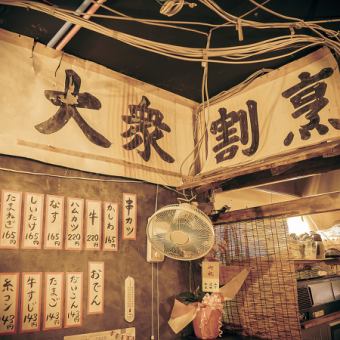 大衆割烹
串カツ
かしわ 165
牛 220
ハムカツ 220
なす 165
しいたけ 165
たまねぎ 165
おでん
だいこん 143
たまご 143
牛すじ 143
糸コン 143